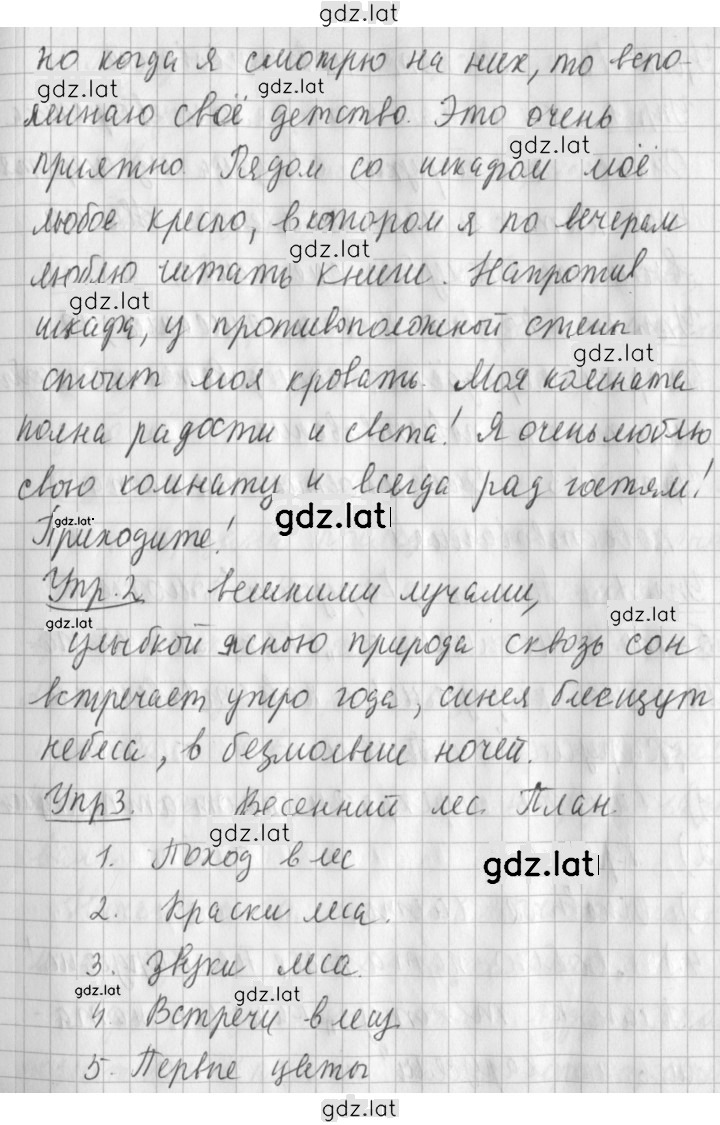 gdz.lat
но когда я смотрю на них, то вспо-
gdz.lat gdz.lat
минаю своё детство. Это очень
gdz.lat
приятно. Рядом со шкафом моё
любое кресло, в котором я по вечерам
gdz.lat
люблю читать книги. Напротив
gdz.lat
шкафа, у противоположной стены
gdz.lat
стоит моя кровать. Моя комната
полна радости и света! Я очень люблю
свою комнату и всегда рад гостям!
gdz.lat gdz.lat
Приходите!
Упр.2 вешними лучами,
gdz.lat gdz.lat
улыбкой ясною природа сквозь сон
встречает утро года, синея блещут
небеса, в безмолвии ночей.
Упр3. Весенний лес. План.
gdz.lat gdz.lat
1. Поход в лес
2. Краски леса.
3. Звуки леса.
gdz.lat gdz.lat
4. Встречи в лесу
5. Первые цветы
gdz.lat